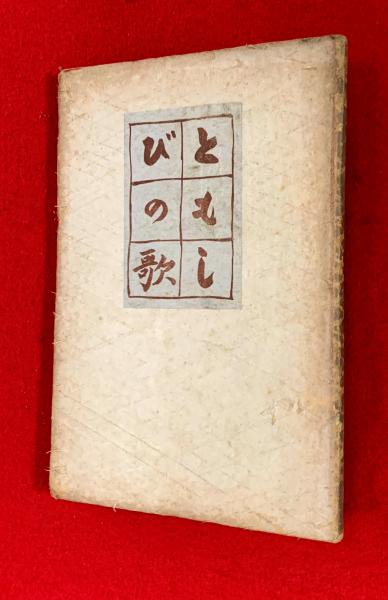 ともし
びの歌